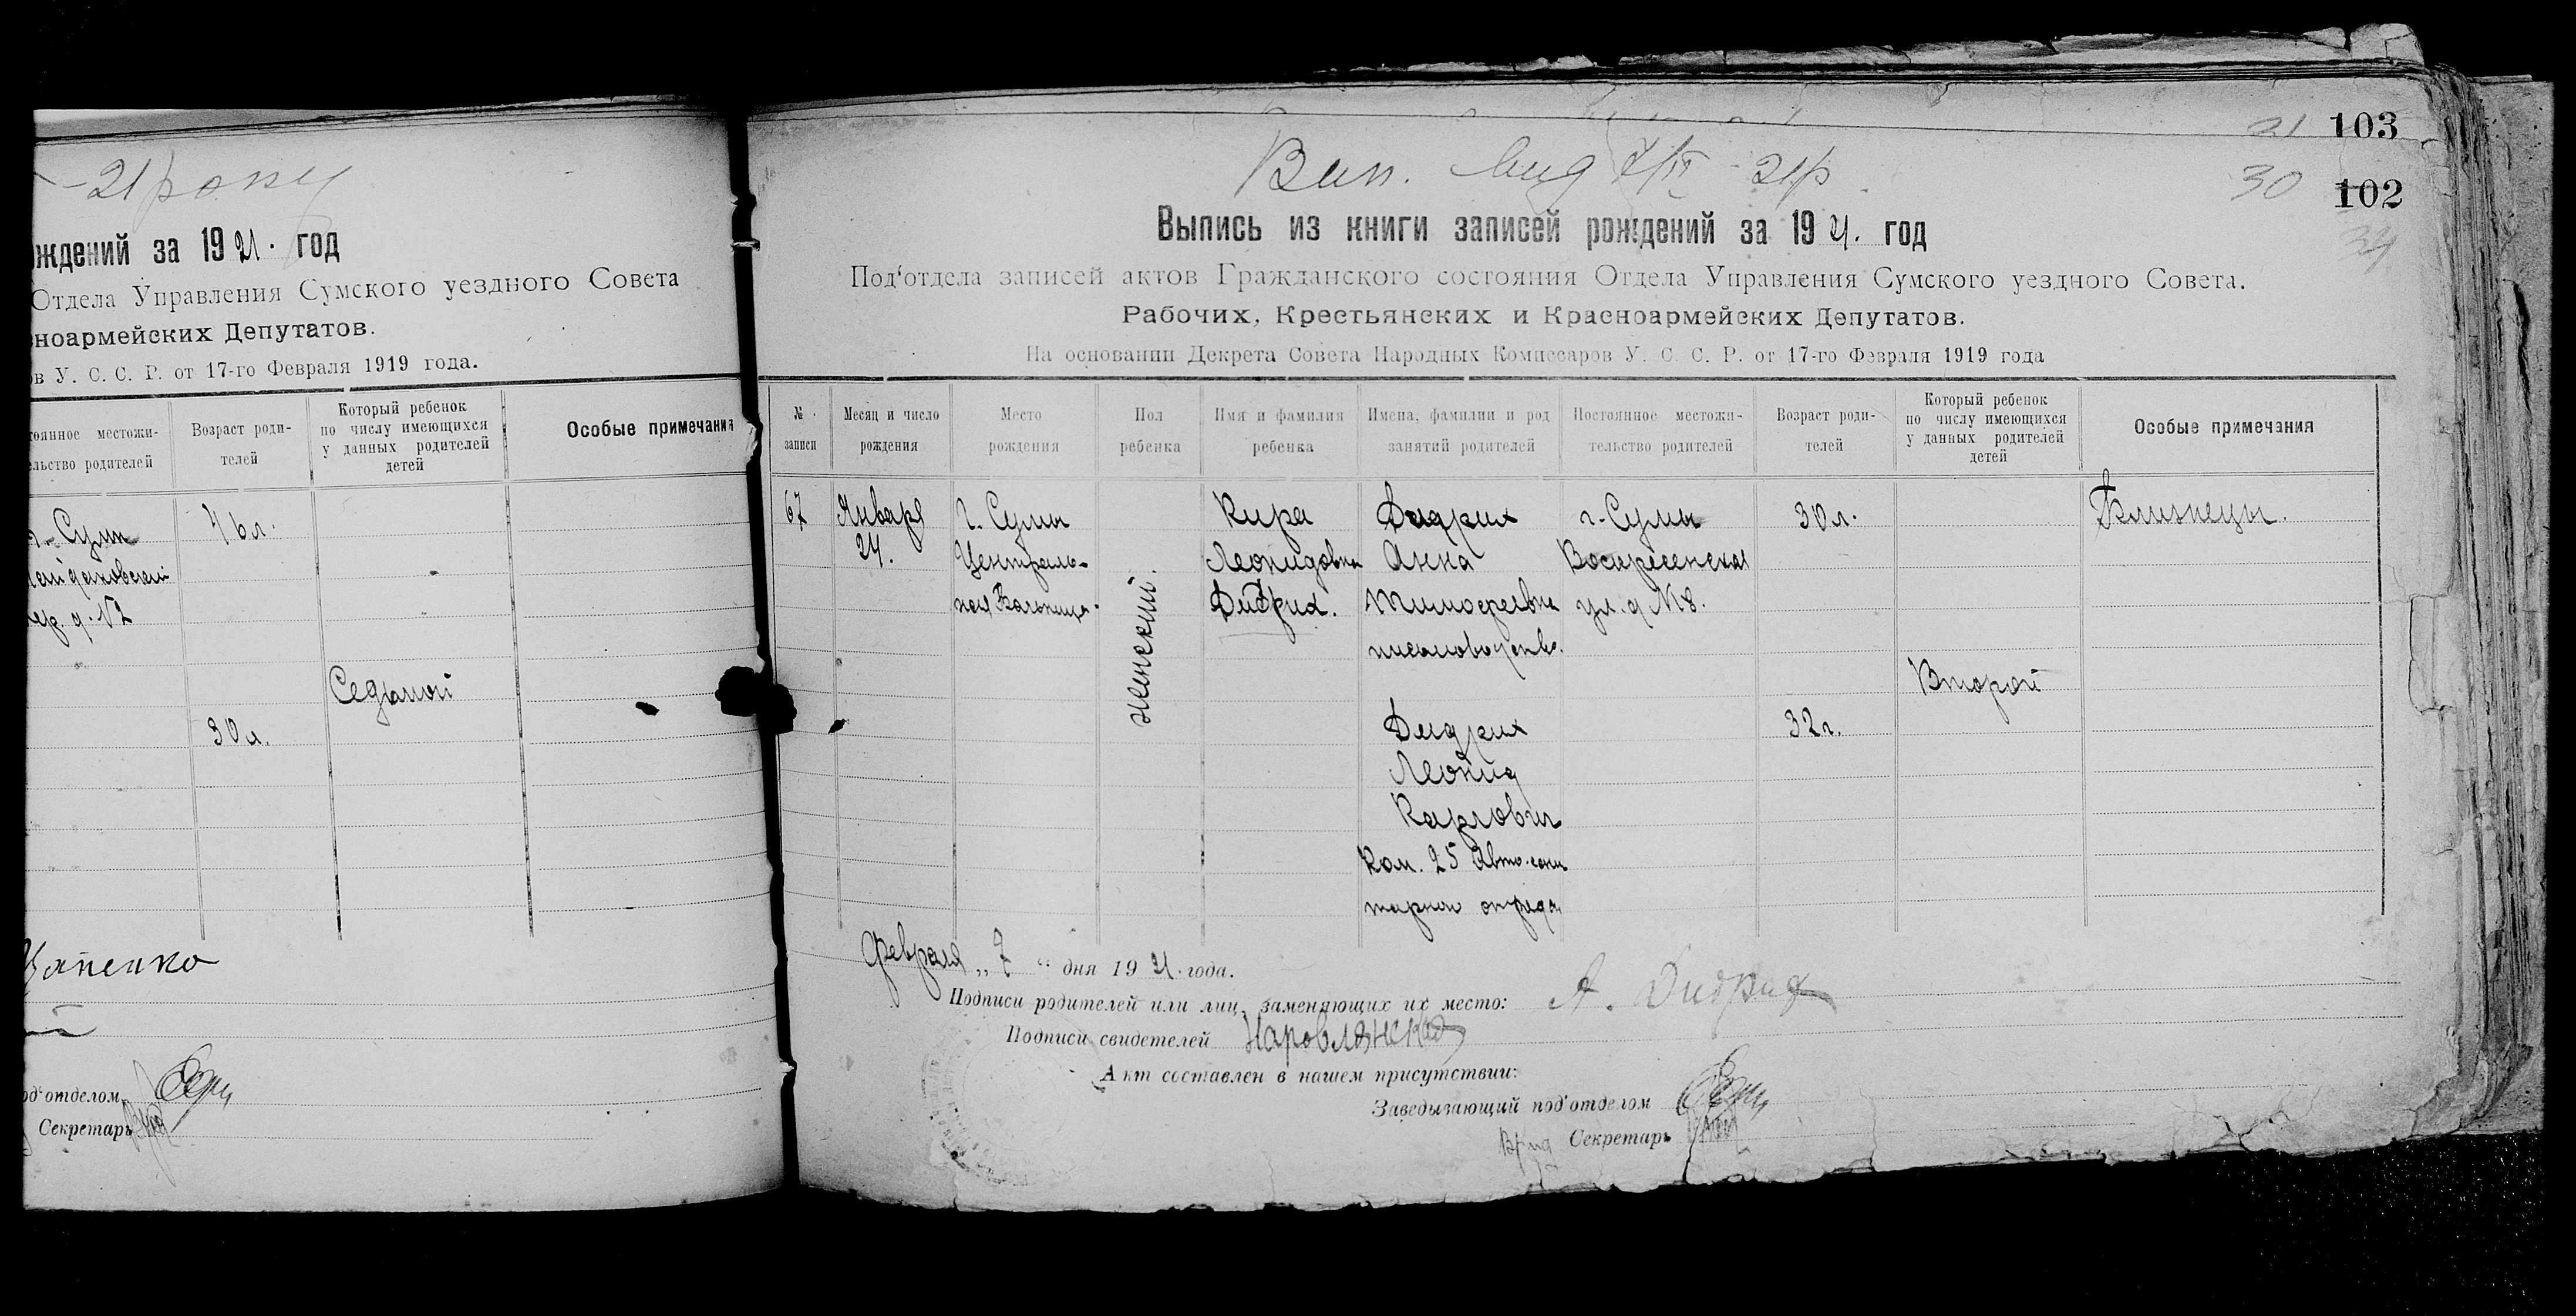 -21 року
ождений за 1921. год
Отдела Управления Сумского уездного Совета
сноармейских Депутатов.
ов У. С. С. Р. от 17-го Февраля 1919 года.
тоянное местожи-
ельство родителей
Возраст роди-
телей
Который ребенок
по числу имеющихся
у данных родителей
детей
Особые примечания
г. Сумы
пер. д. №2
46 л.
30 л.
Седьмой
од'отделом
Секретарь
21 103
30 102
Вип. 7/II - 21 р
Выпись из книги записей рождений за 1921. год
Под'отдела записей актов Гражданского состояния Отдела Управления Сумского уездного Совета.
Рабочих, Крестьянских и Красноармейских Депутатов.
На основании Декрета Совета Народных Комиссаров У. С. С. Р. от 17-го Февраля 1919 года
№
записи
Месяц и число
рождения
Место
рождения
Пол
ребенка
Имя и фамилия
ребенка
Имена, фамилии и род
занятий родителей
Постоянное местожи-
тельство родителей
Возраст роди-
телей
Который ребенок
по числу имеющихся
у данных родителей
детей
Особые примечания
67
Января
24.
г. Сумы
Централь-
ная Больница.
женский.
Кира
Леонидовна
Дидрих.
Дидрих
Анна
Тимофеевна
письмоводство.
Дидрих
Леонид
Карлович
Ком. 25 Авто-сани
тарного отряда
г. Сумы
Воскресенская
ул. д №8.
30 л.
32 г.
Второй
Близнецы.
Февраля „7“ дня 1921. года.
Подписи родителей или лиц, заменяющих их место: А. Дидрих
Подписи свидетелей Наровлянский
Акт составлен в нашем присутствии:
Заведывающий под'отделом
Врид Секретарь